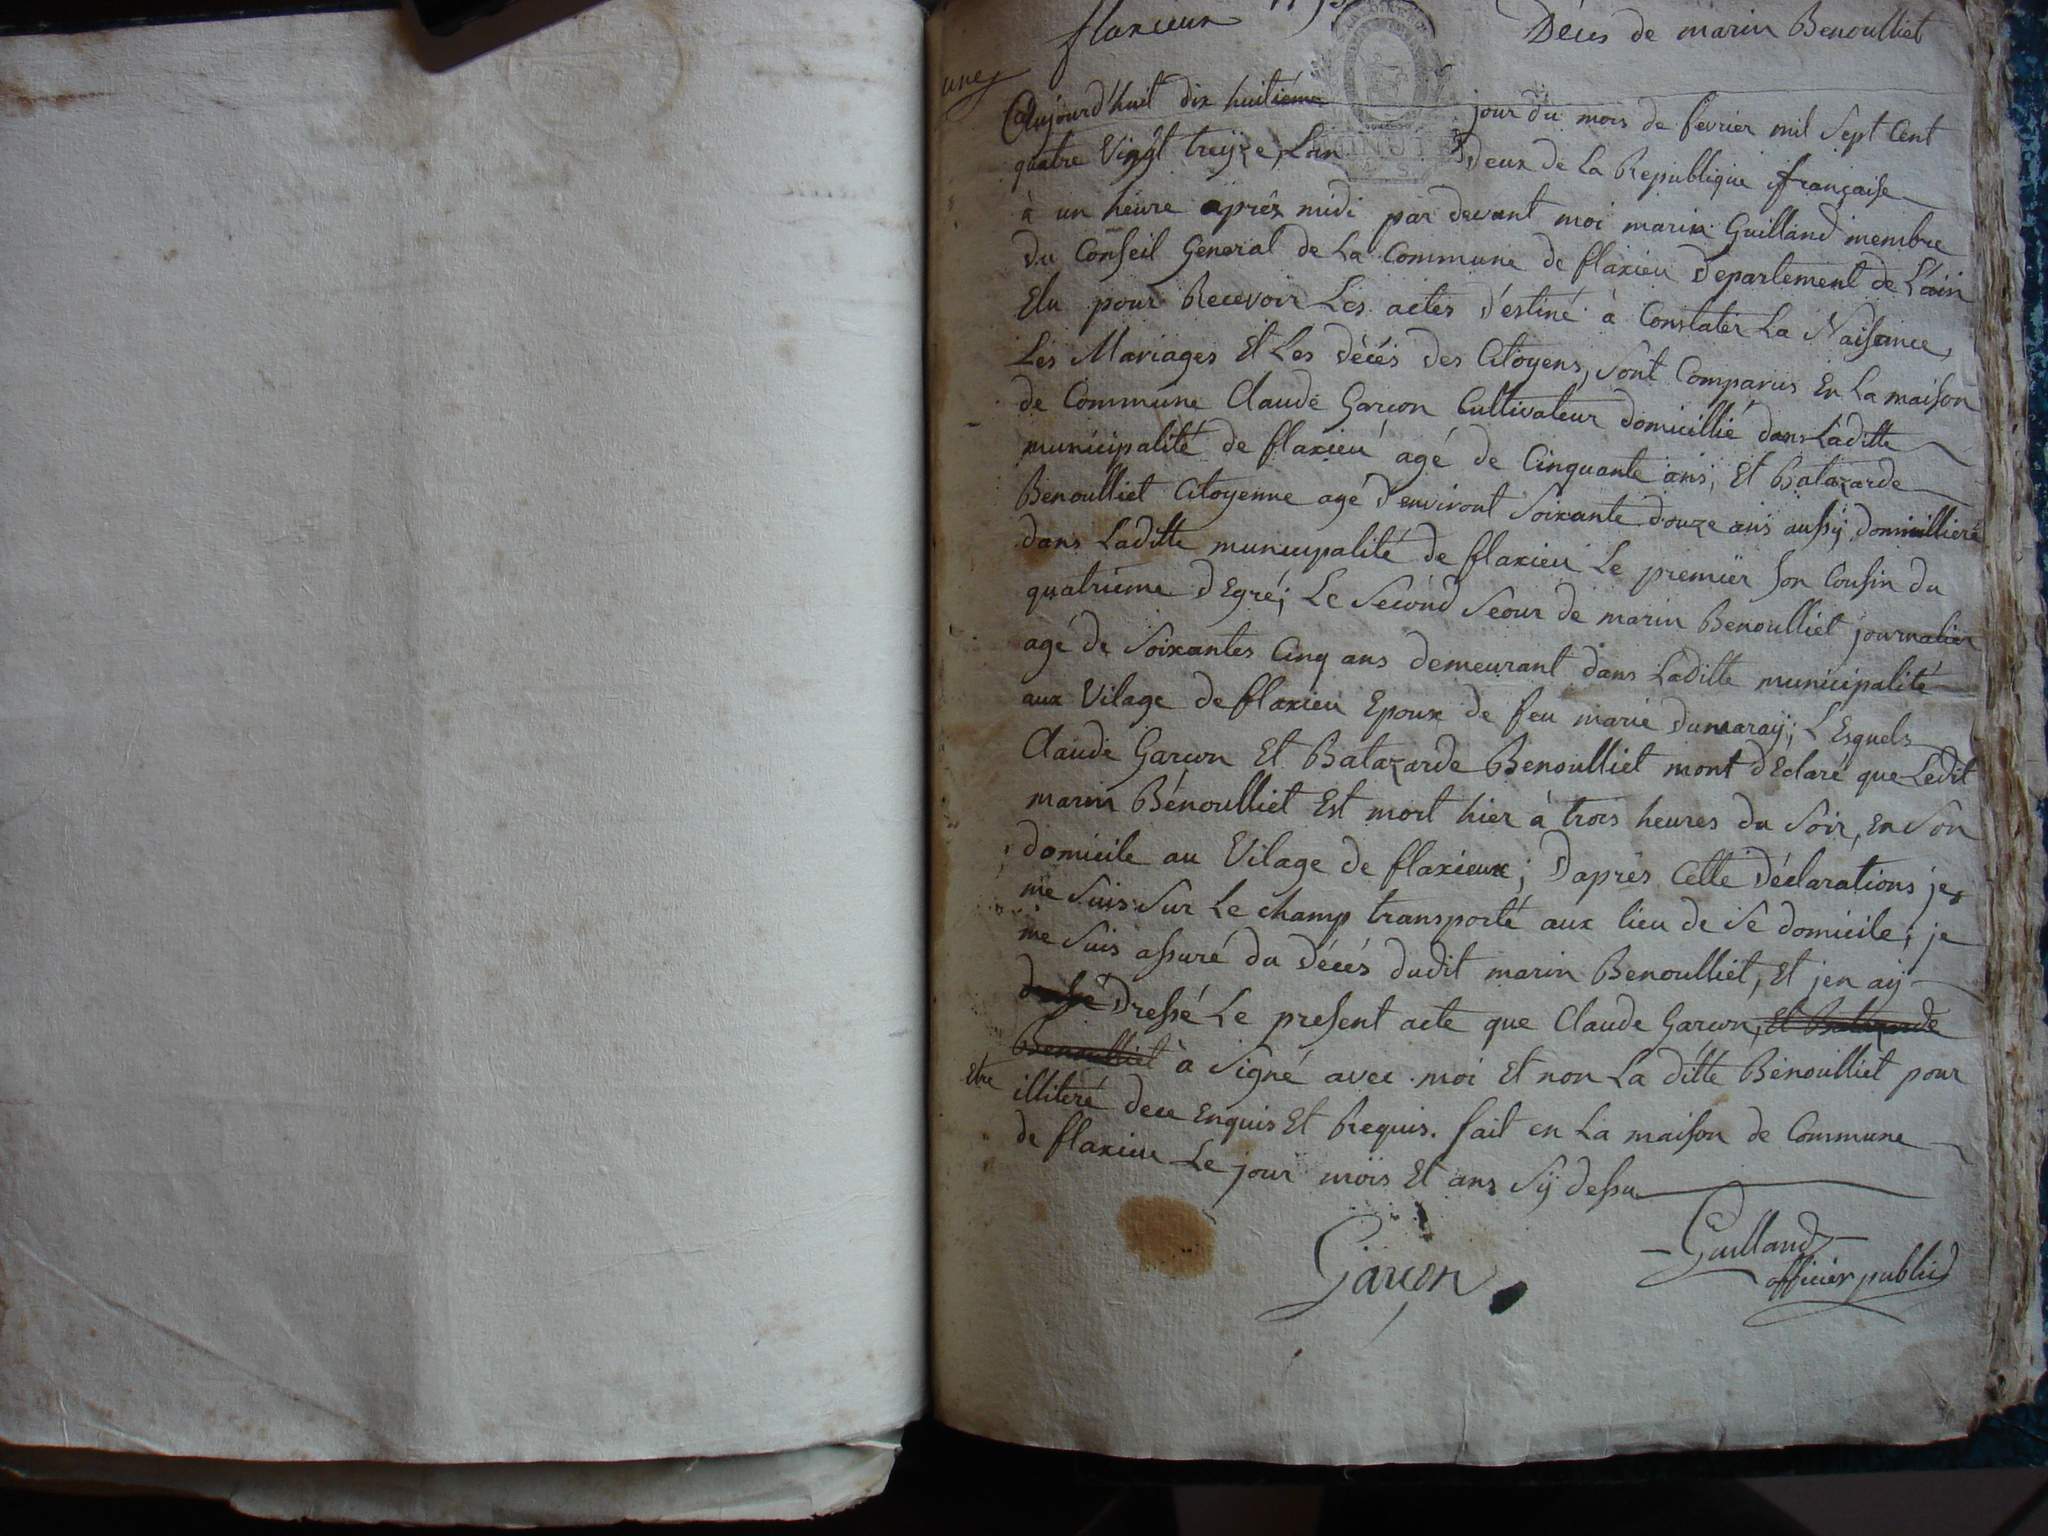 flaxieux 1793
Déces de marin Benoulliet
une
Aujourd'huit dix huitième jour du mois de fevrier mil sept Cent
quatre Vingt treize, Lan deux de La Republique française
à un heure après midi par devant moi marin Guilland membre
du Conseil General de La Commune de flaxieu departement de L'ain
Elu pour Recevoir Les actes d'estiné à Constater La Naisance,
Les Mariages Et Les décés des Citoyens, sont Comparus En La maison
de Commune Claude Garçon Cultivateur domicillié dans Laditte
municipalité de flaxieu agé de Cinquante ans, Et Batazarde
Benoulliet Citoyenne agé d'environt Soixante douze ans aussy domicilliere
dans Laditte municipalité de flaxieu Le premier son Cousin du
quatrieme dEgré; Le Sécond Seour de marin Benoulliet journalier
agé de Soixantes Cinq ans demeurant dans Laditte municipalité
aux Vilage de flaxieu Epoux de feu marie dumaraÿ; LEsquels
Claude Garçon Et Batazarde Benoulliet mont dEclaré que Ledit
marin Bénoulliet Est mort hier à trois heures du Soir, en Son
domicile au Vilage de flaxieux; Daprès Cette déclarations je
me Suis Sur Le champ transporté aux lieu de Se domicile; je
me Suis assuré du décés dudit marin Benoulliet, Et jen aÿ
dressé Dressé Le present acte que Claude Garçon, Et Batazarde
Benoulliet à Signé avec moi Et non La ditte Bénoulliet pour
Etre
illiteré dece Enquis Et Requis. fait en La maison de Commune
de flaxieu Le jour mois Et ans Sÿ dessu
Garçon
Guilland
officier public